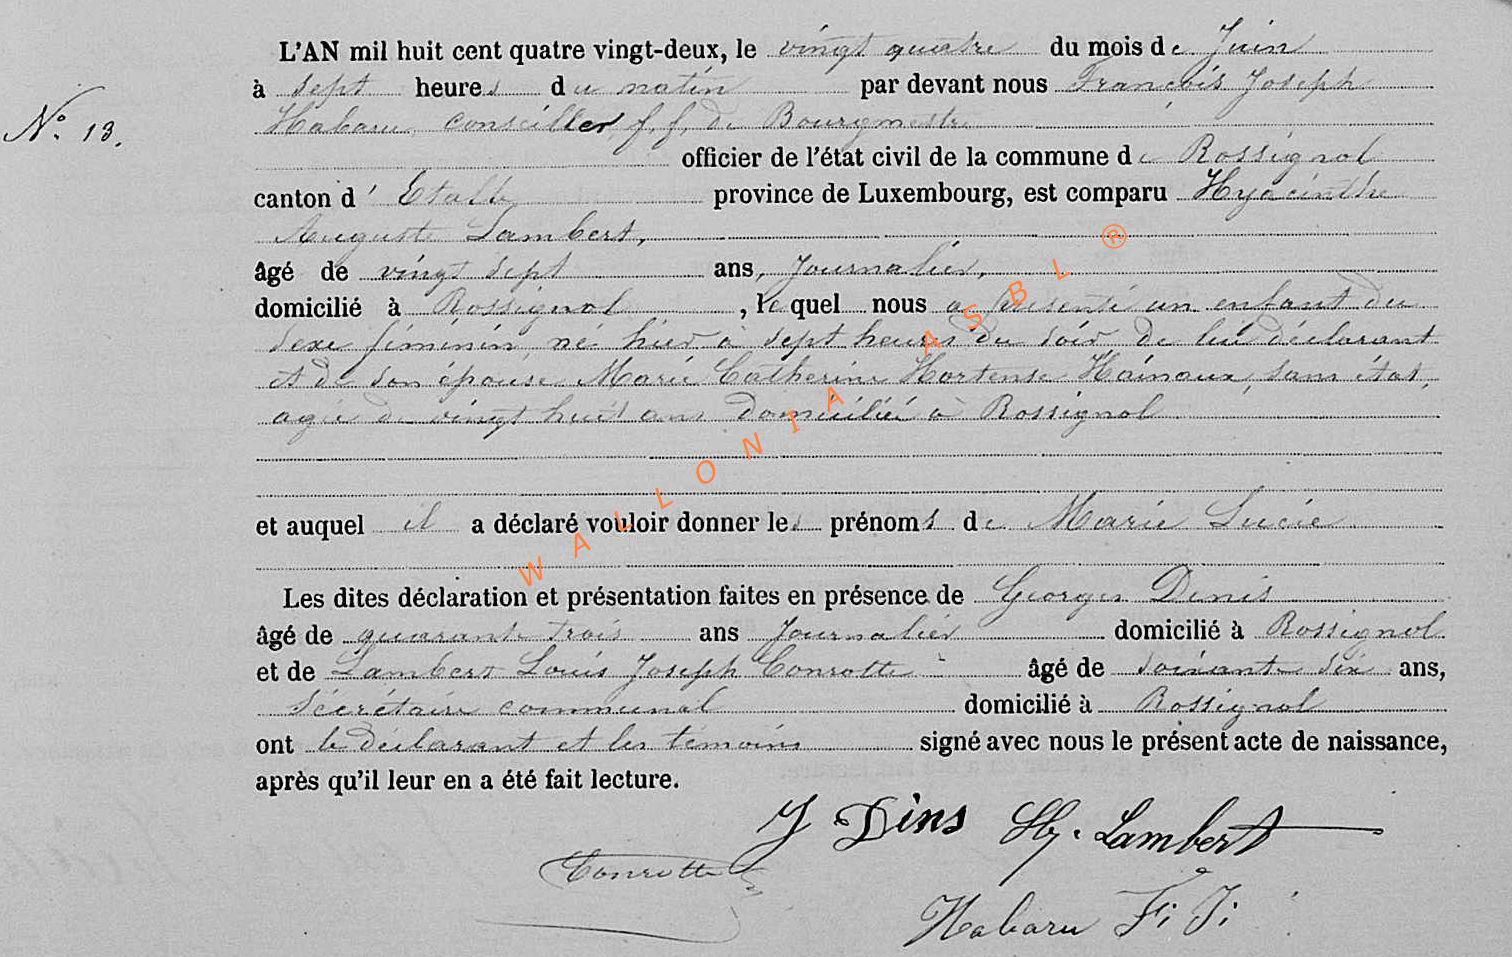 L'AN mil huit cent quatre vingt-deux, le vingt quatre du mois de Juin
à sept heures du matin par devant nous François Joseph
N° 13.
Habaru, conseiller f.f. de Bourgmestre
officier de l'état civil de la commune de Rossignol
canton d'Etalle province de Luxembourg, est comparu Hyacinthe
Auguste Lambert,
âgé de vingt sept ans, Journalier,
domicilié à Rossignol, lequel nous a présenté un enfant du
sexe féminin, né hier à sept heures du soir de lui déclarant
et de son épouse Marie Catherine Hortense Hainaux, sans état,
agée de vingt huit ans domiciliée à Rossignol
et auquel il a déclaré vouloir donner les prénoms de Marie Lucie
Les dites déclaration et présentation faites en présence de Georges Denis
âgé de quarante trois ans Journalier domicilié à Rossignol
et de Lambert Louis Joseph Conrotte âgé de soixante six ans,
Sécrétaire communal domicilié à Rossignol
ont le déclarant et les témoins signé avec nous le présent acte de naissance,
après qu'il leur en a été fait lecture.
J Dins Hy. Lambert
Conrotte
Habaru F. J.
WALLONIA ASBL ®